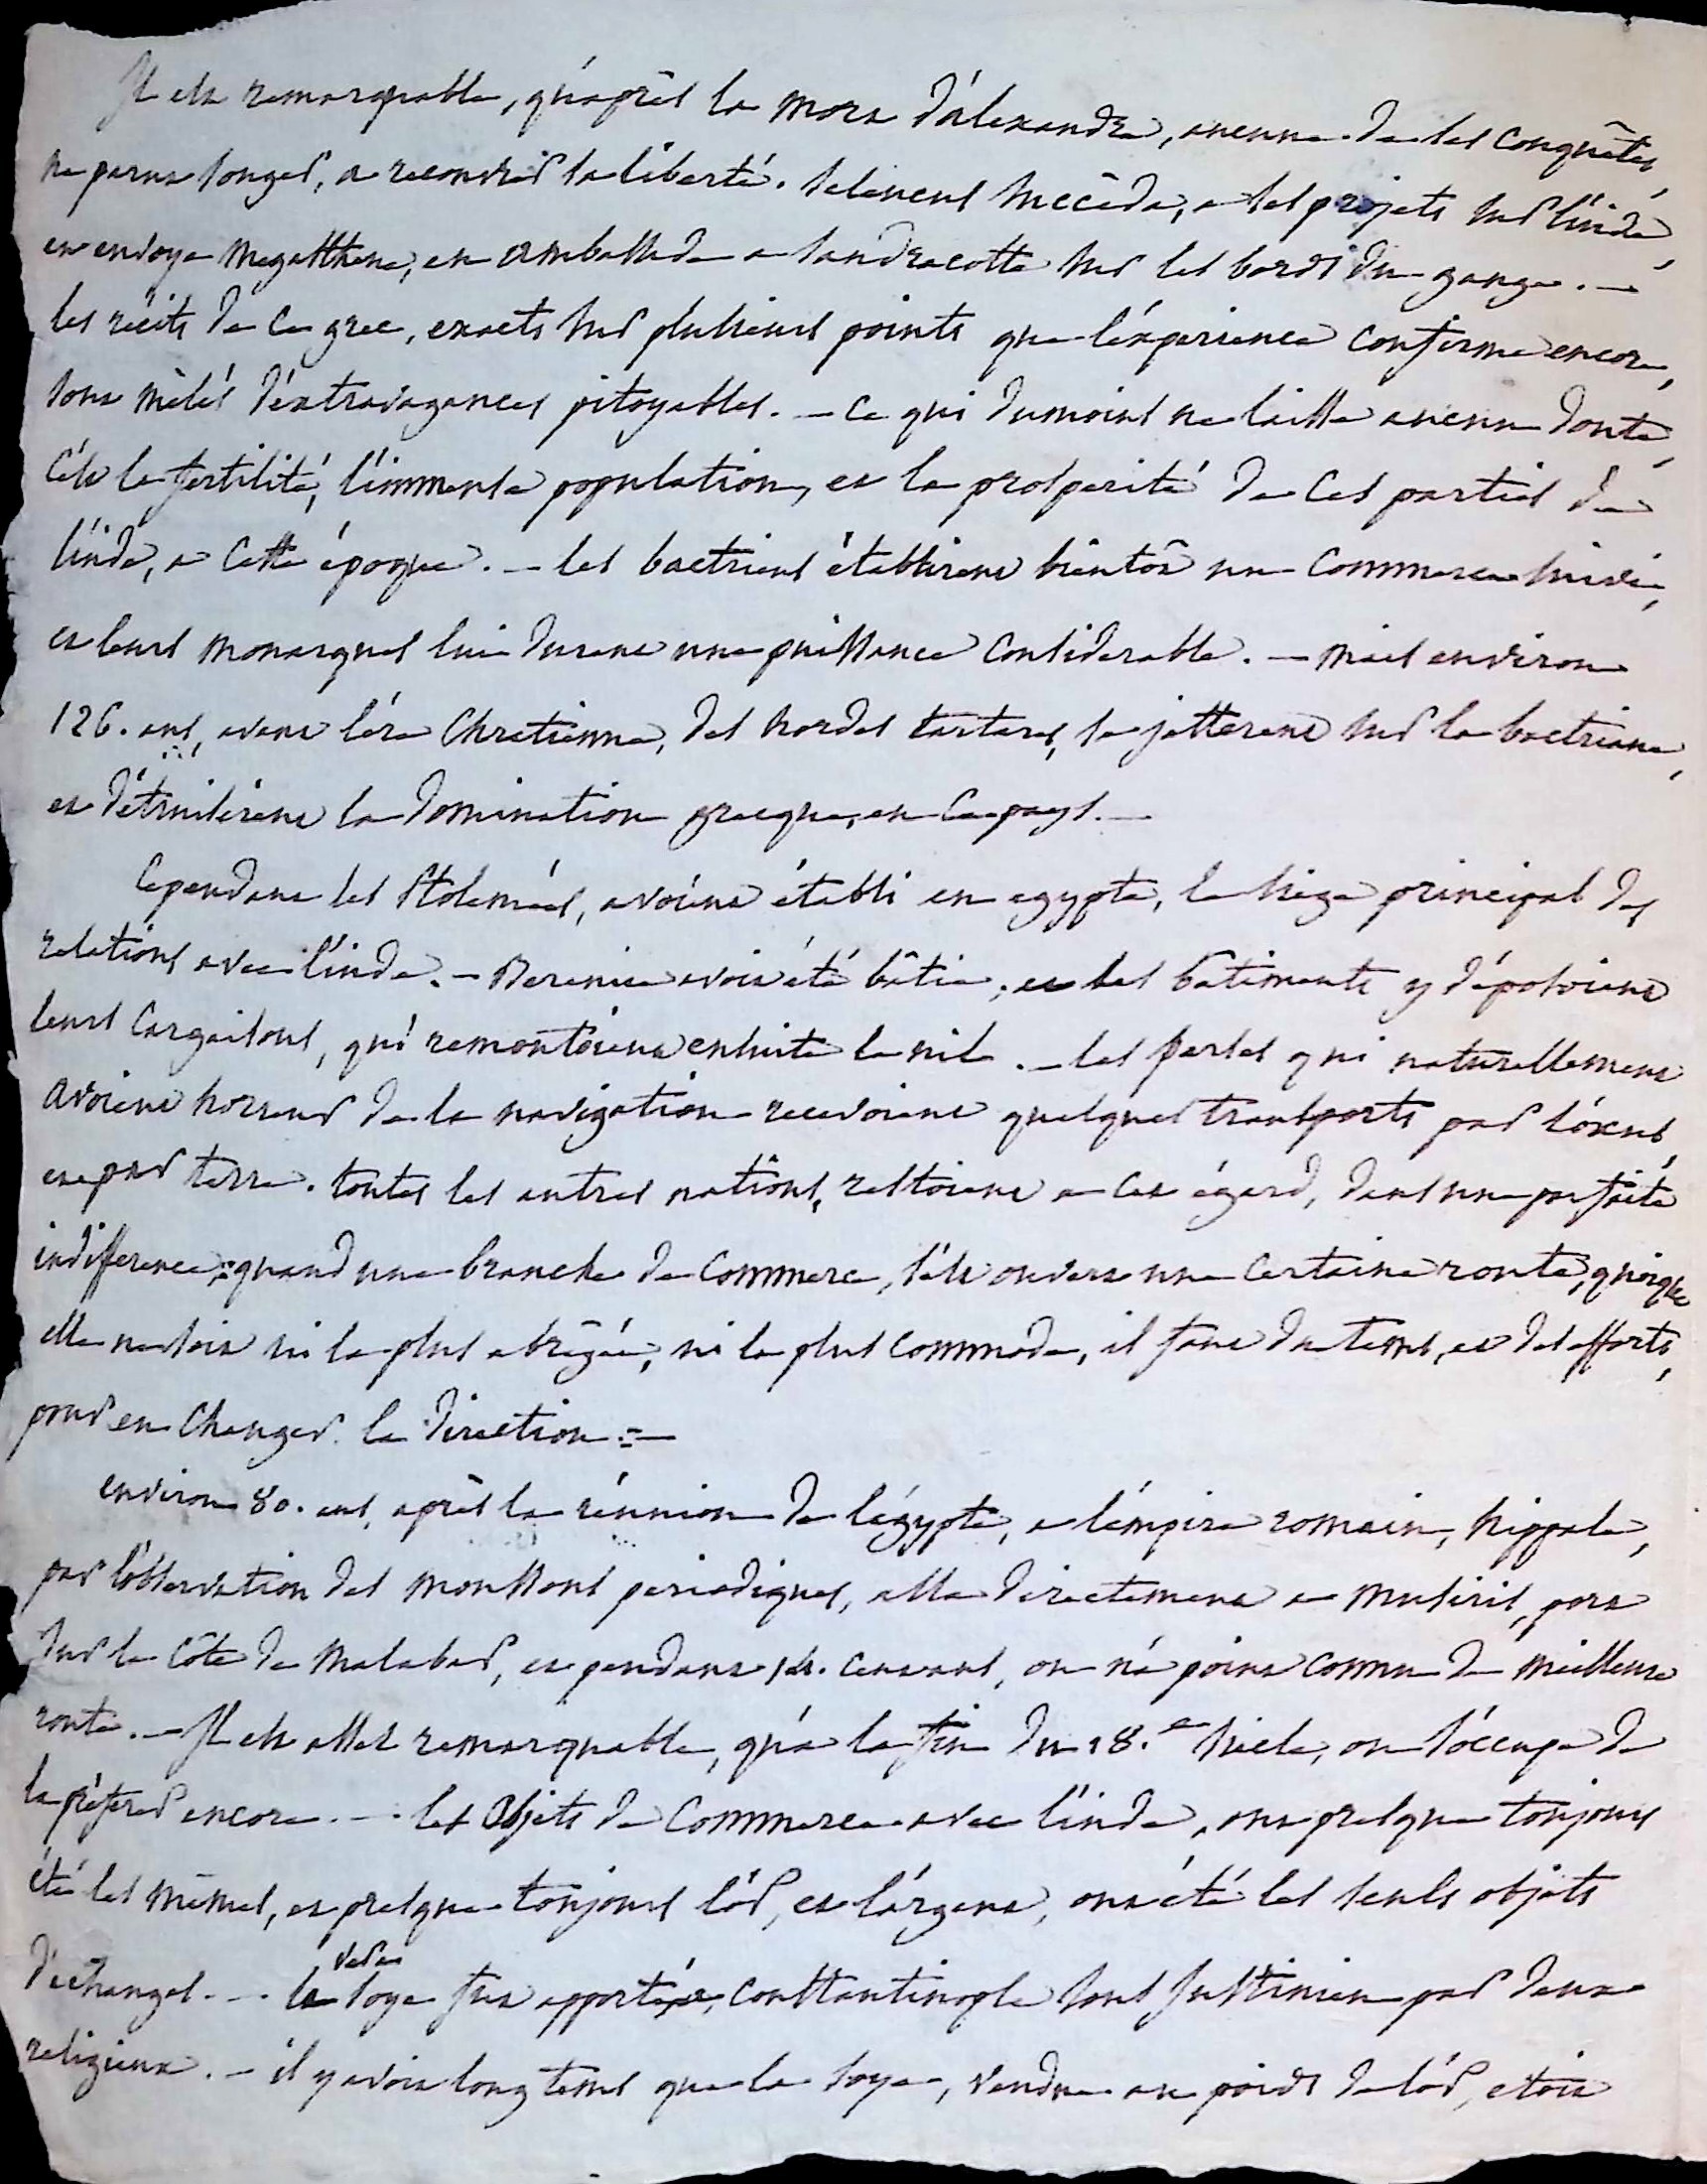 Il est remarquable, qu'après la mort d'alexandre, aucune de ses conquêtes,
ne parut songer, a recouvrer sa liberté. seleucus succéda, a ses projets sur l'inde,
et envoya megasthene, en ambassade a sandracotta sur les bords du gange. —
les récits de ce grec, exacts sur plusieurs points que l'éxperience confirme encore,
sont mèlés d'éxtravagances pitoyables. — ce qui dumoins ne laisse aucun doute,
c'ést la fertilité, l'immense population, et la prosperité de ces parties de
l'inde, a cette époque. — les bactriens établirent bientôt un commerce suivi,
et leurs monarques lui durent une puissance considerable. — mais environ
126. ans, avant l'ére Chretienne, des hordes tartares, se jetterent sur la bactriane,
et détruisirent la domination grecque, en ce pays. —
Cependant les Ptolemées, avoient établi en egypte, le siege principal des
relations avec l'inde. — Berenice avoit été bâtie, et les bâtiments y déposoient
leurs cargaisons, qui remontoient ensuite le nil. — les perses qui naturellement
avoient horreur de la navigation recevoient quelques transports par l'óxus,
et par terre. toutes les autres nations, restoient a cet égard, dans une parfaite
indifference; quand une branche de commerce, s'ést ouvert une certaine route, quoique
elle ne soit ni la plus abrégée, ni la plus commode, il faut du tems, et des efforts,
pour en changer la direction. —
environ 80. ans, après la réunion de l'égypte, a l'émpire romain, hippale,
par l'observation des moussons periodiques, alla directement a musiris, port
sur la côte de Malabar, et pendant 14. cens ans, on n'a point connu de meilleure
route. — Il est assez remarquable, qu'a la fin du 18.e siecle, on s'occupe de
la préferer encore. — les objets de commerce avec l'inde, ont presque toujours
été les mêmes, et presque toujours l'ór, et l'árgent, ont été les seuls objets
d'échanges. — le ver a soye fut apporté a constantinople sous Justinien par deux
religieux. — il y avoit long tems que la soye, vendue au poids de l'ór, etoit